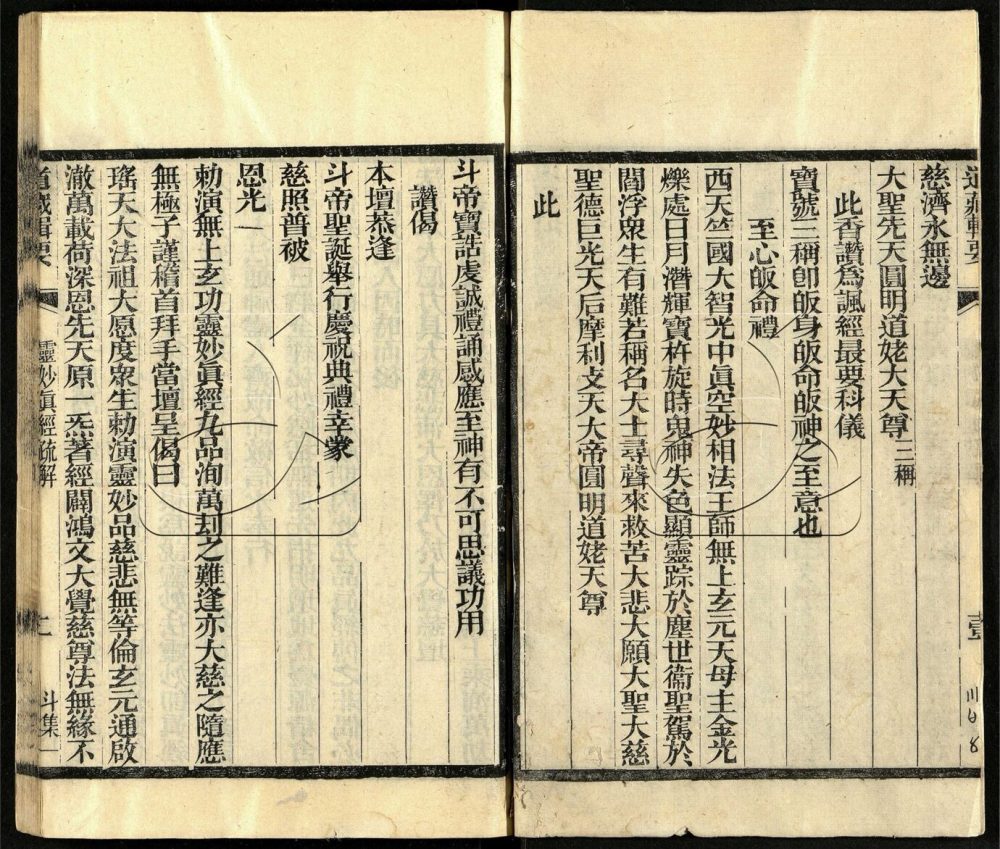 道藏輯要
壹
慈濟永無邊
大聖先天圓明道姥大天尊三稱
此香讚爲諷經最要科儀
寶號三稱卽皈身皈命皈神之至意也
至心皈命禮
西天竺國大智光中眞空妙相法王師無上玄元天母主金光
爍處日月潛輝寶杵旋時鬼神失色顯靈踪於塵世衞聖駕於
閻浮衆生有難若稱名大士尋聲來救苦大悲大願大聖大慈
聖德巨光天后摩利攴天大帝圓明道姥天尊
此
斗帝寶誥虔誠禮誦感應至神有不可思議功用
讚偈
本壇恭逢
斗帝聖誕舉行慶祝典禮幸蒙
慈照普被
恩光一
勅演無上玄功靈妙眞經九品洵萬刦之難逢亦大慈之隨應
無極子謹稽首拜手當壇呈偈曰
瑤天大法祖大愿度衆生勅演靈妙品慈悲無等倫玄元通啟
澈萬載荷深恩先天原一炁著經闢鴻文大覺慈尊法無緣不
道藏輯要
靈妙眞經疏解
斗集一